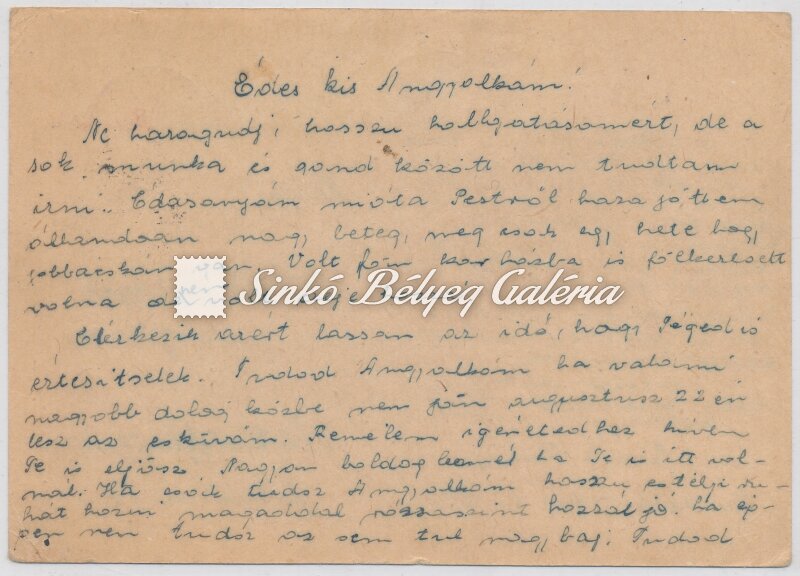 Édes kis Angyalkám!
Ne haragudj, hosszu hallgatásomért, de a
sok munka és gond között nem tudtam
irni. Édasanyám mióta Pestről haza jöttem
állandoan nagy beteg, meg csak egy hete hogy
jobbacskán van. Volt főm korházba is fölkerlett
volna
Sinkó Bélyeg Galéria
Elérkezik azért lassan az idő, hogy Tégedis
értesitselek. Tudod Angyalkám ha valami
nagyobb dolog közbe nem jön augusztus 22 én
lesz az esküvőm. Remélem igéretedhez hiven
Te is eljösz. Nagyon boldog lennél ha Te is itt vol-
nál. Ha csak tudsz Angyalkám hosszu estélyi ru-
hát hozni magaddal rózsaszint hozzál jó. ha ép-
pen nem tudsz az sem tul nagy baj. Tudod